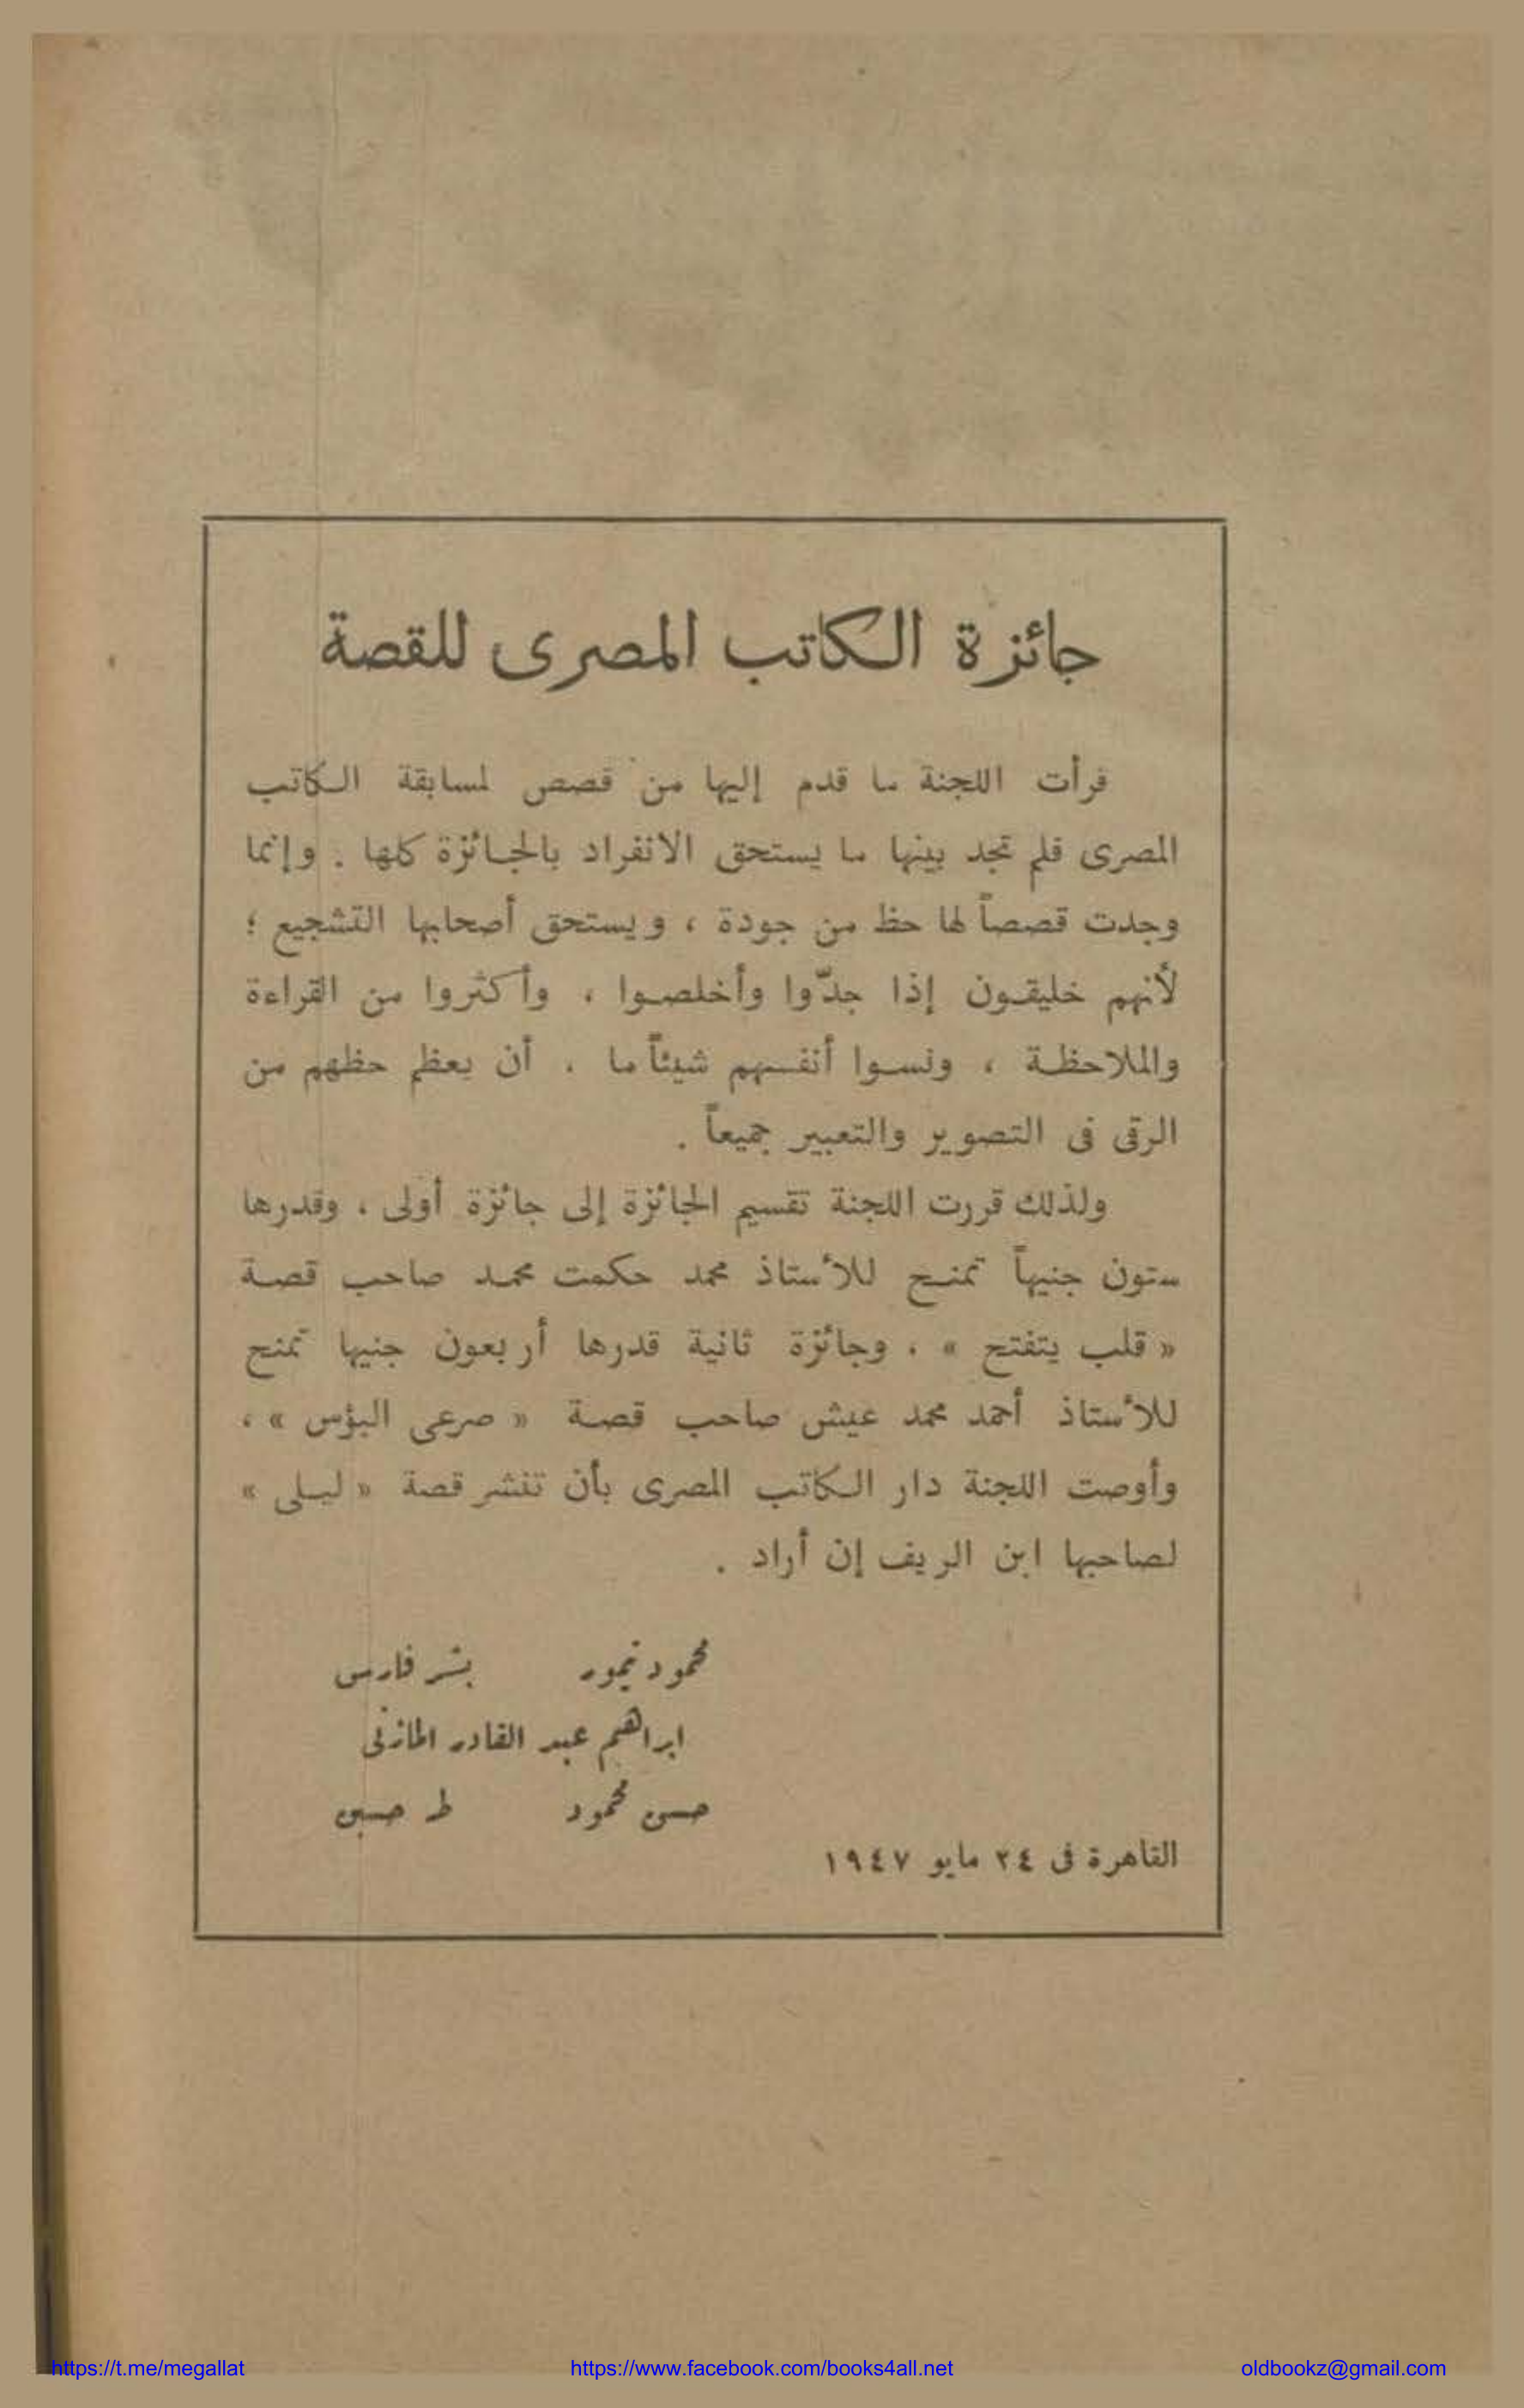 جائزة الكاتب المصرى للقصة
قرأت اللجنة ما قدم إليها من قصص لمسابقة الكاتب
المصرى فلم تجد بينها ما يستحق الانفراد بالجائزة كلها . وإنما
وجدت قصصاً لها حظ من جودة ، ويستحق أصحابها التشجيع ؛
لأنهم خليقون إذا جدّوا وأخلصوا ، وأكثروا من القراءة
والملاحظة ، ونسوا أنفسهم شيئاً ما ، أن يعظم حظهم من
الرقى فى التصوير والتعبير جميعاً .
ولذلك قررت اللجنة تقسيم الجائزة إلى جائزة أولى ، وقدرها
ستون جنيهاً تمنح للأستاذ محمد حكمت محمد صاحب قصة
« قلب يتفتح » ، وجائزة ثانية قدرها أربعون جنيها تمنح
للأستاذ أحمد محمد عيش صاحب قصة « صرعى البؤس » ،
وأوصت اللجنة دار الكاتب المصرى بأن تنشر قصة « ليلى »
لصاحبها ابن الريف إن أراد .
محمود تيمور بشر فارس
ابراهيم عبد القادر المازنى
حسن محمود طه حسين
القاهرة فى ٢٤ مايو ١٩٤٧
https://t.me/megallat https://www.facebook.com/books4all.net oldbookz@gmail.com